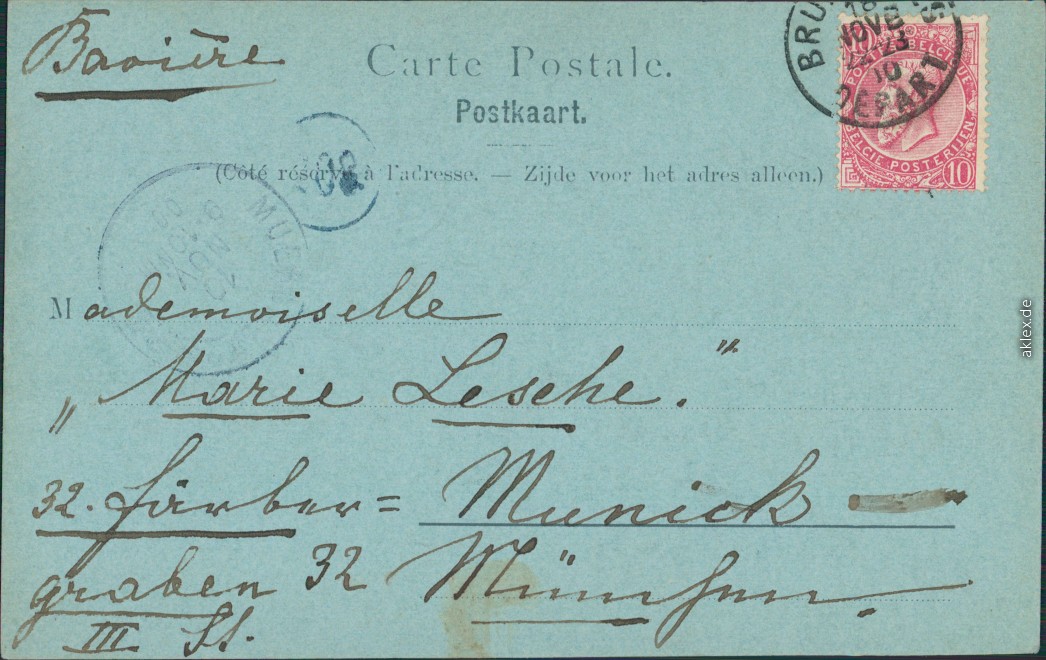 Bavière
Carte Postale.
Postkaart.
(Côté réservé à l'adresse. — Zijde voor het adres alleen.)
NOVE
10
DEPART
POSTES BELGIQUE
BELGIE POSTERIJEN
10
NOV
Mademoiselle
„Marie Lesche."
32. Färber= Munick
graben 32 München
III St.
aklex.de